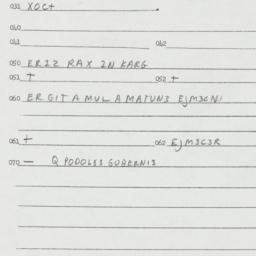 033 XOC+ .
040
043 042
050 ER22 RAX 2N KARG
051 + 052 +
060 ER GIT A MUL A MATUNS EJM3CNI
061 + 062 EJM3C3R
070 — Q PODOLSS GUBERNIS